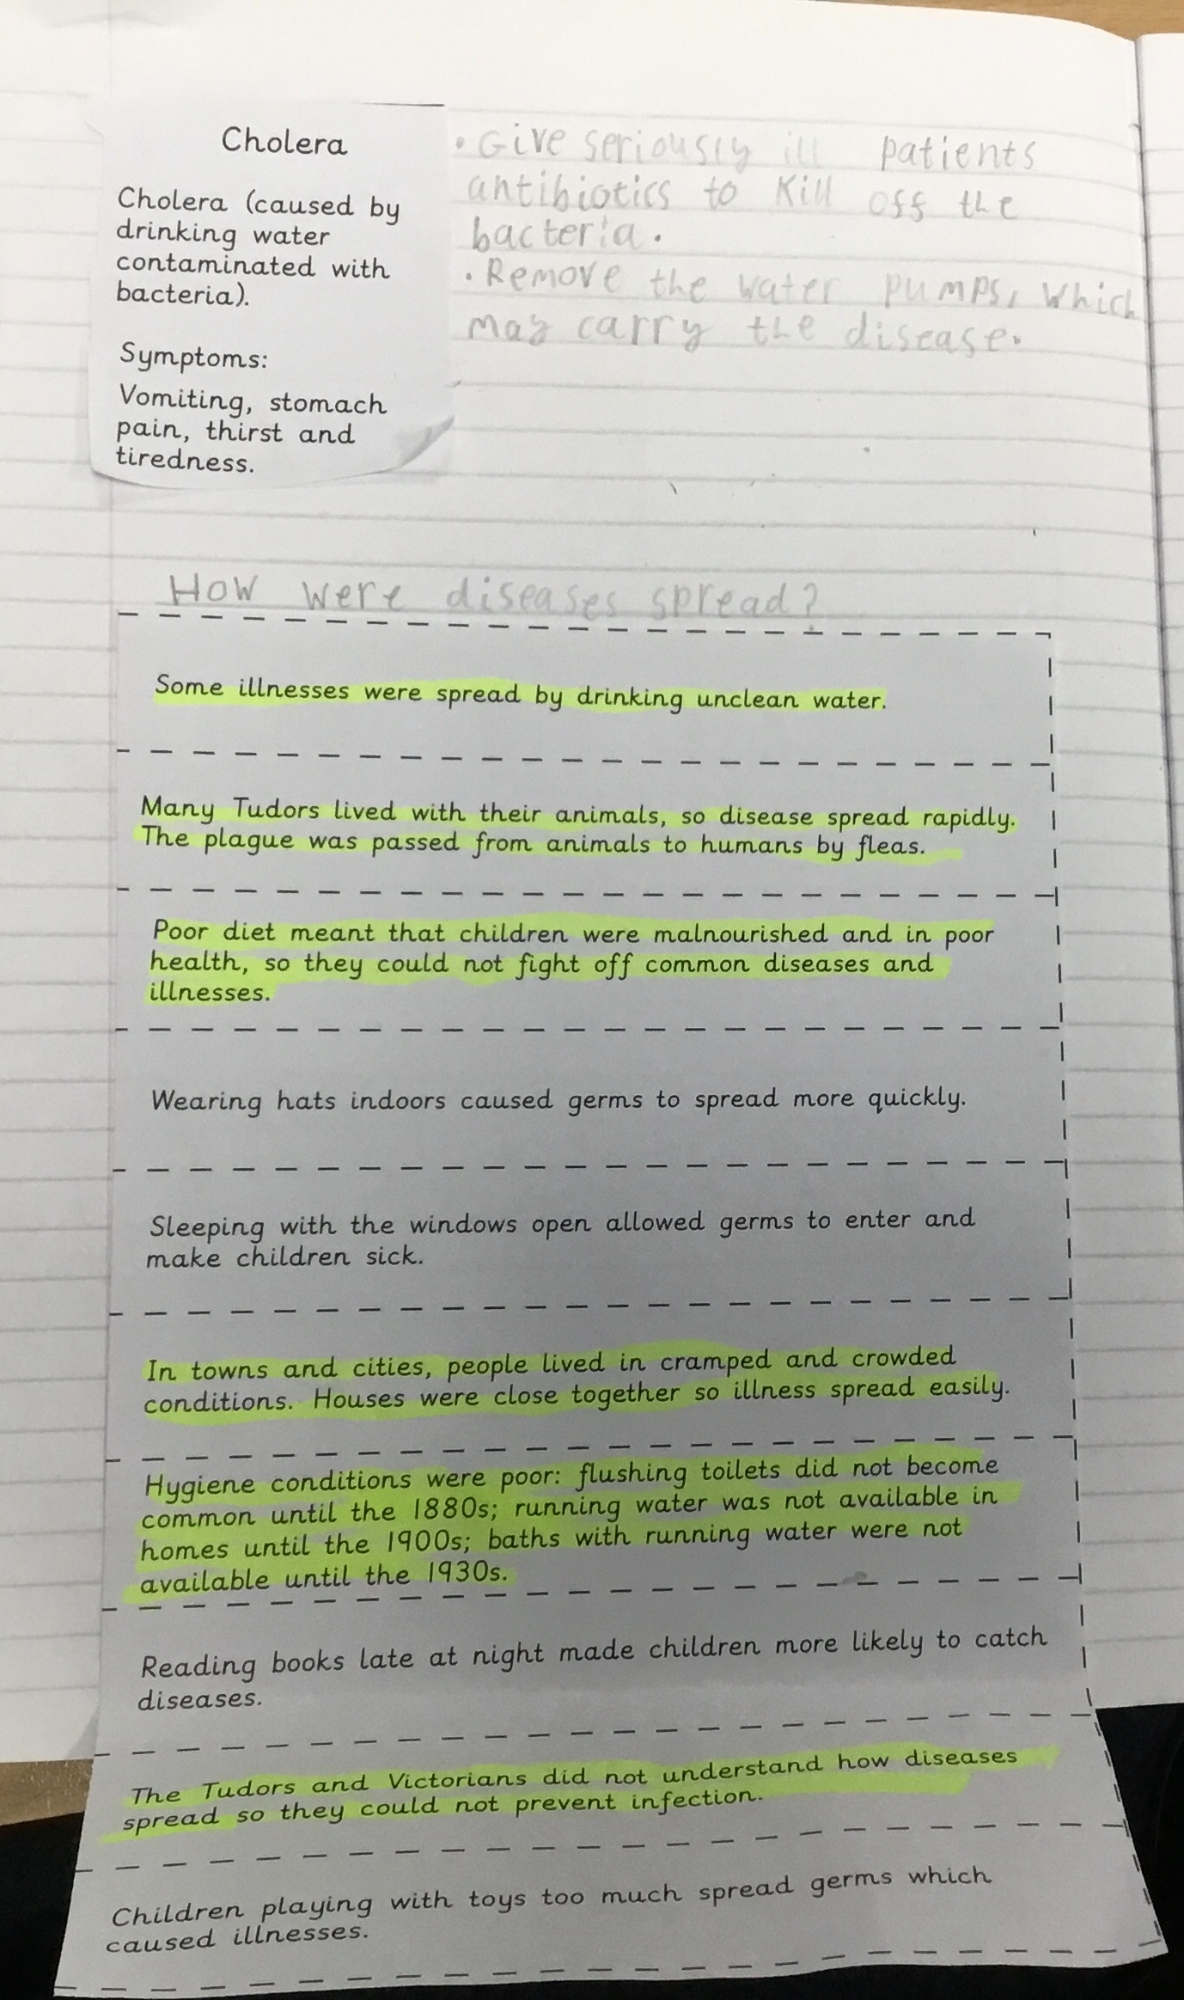 Cholera
Cholera (caused by
drinking water
contaminated with
bacteria).
Symptoms:
Vomiting, stomach
pain, thirst and
tiredness.
• Give seriously ill patients
antibiotics to Kill off the
bacteria.
• Remove the water pumps, which
may carry the disease.
How were diseases spread?
Some illnesses were spread by drinking unclean water.
Many Tudors lived with their animals, so disease spread rapidly.
The plague was passed from animals to humans by fleas.
Poor diet meant that children were malnourished and in poor
health, so they could not fight off common diseases and
illnesses.
Wearing hats indoors caused germs to spread more quickly.
Sleeping with the windows open allowed germs to enter and
make children sick.
In towns and cities, people lived in cramped and crowded
conditions. Houses were close together so illness spread easily.
Hygiene conditions were poor: flushing toilets did not become
common until the 1880s; running water was not available in
homes until the 1900s; baths with running water were not
available until the 1930s.
Reading books late at night made children more likely to catch
diseases.
The Tudors and Victorians did not understand how diseases
spread so they could not prevent infection.
Children playing with toys too much spread germs which
caused illnesses.